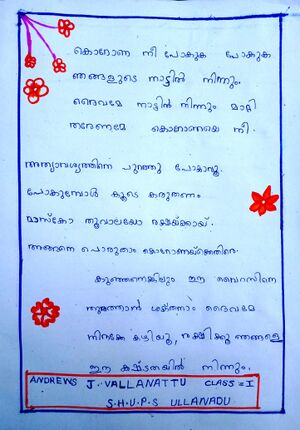 കൊറോണ നീ പോകുക പോകുക
ഞങ്ങളുടെ നാട്ടിൽ നിന്നും.
ദൈവമേ നാട്ടിൽ നിന്നും മാറ്റി
തരേണമേ കൊറോണയെ നീ.
അത്യാവശ്യത്തിനെ പുറത്തു പോകാവൂ
പോകുമ്പോൾ കൂടെ കരുതണം
മാസ്കോ തൂവാലയോ രക്ഷയ്ക്കായ്.
അങ്ങനെ പൊരുതാം കൊറോണയ്ക്കെതിരെ.
കുഞ്ഞനെങ്കിലും ഈ വൈറസിനെ
തുരത്താൻ ദൈവമേ
നിനക്കേ കഴിയൂ, രക്ഷിക്കൂ ഞങ്ങളെ
ഈ കഷ്ടതയിൽ നിന്നും.
ANDREWS J. VALLANATTU CLASS = I
S.H.U.P.S ULLANADU